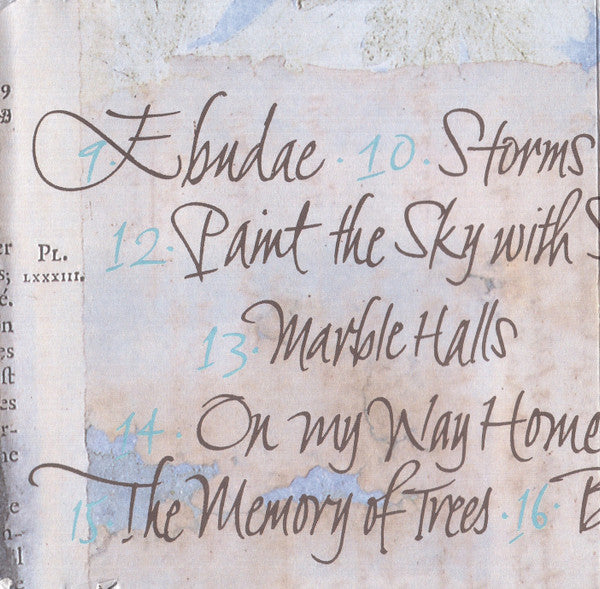 9. Ebudae · 10. Storms
12. Paint the Sky with S
PL.
LXXXIII.
13. Marble Halls
14. On my Way Home
15. The Memory of Trees · 16. B